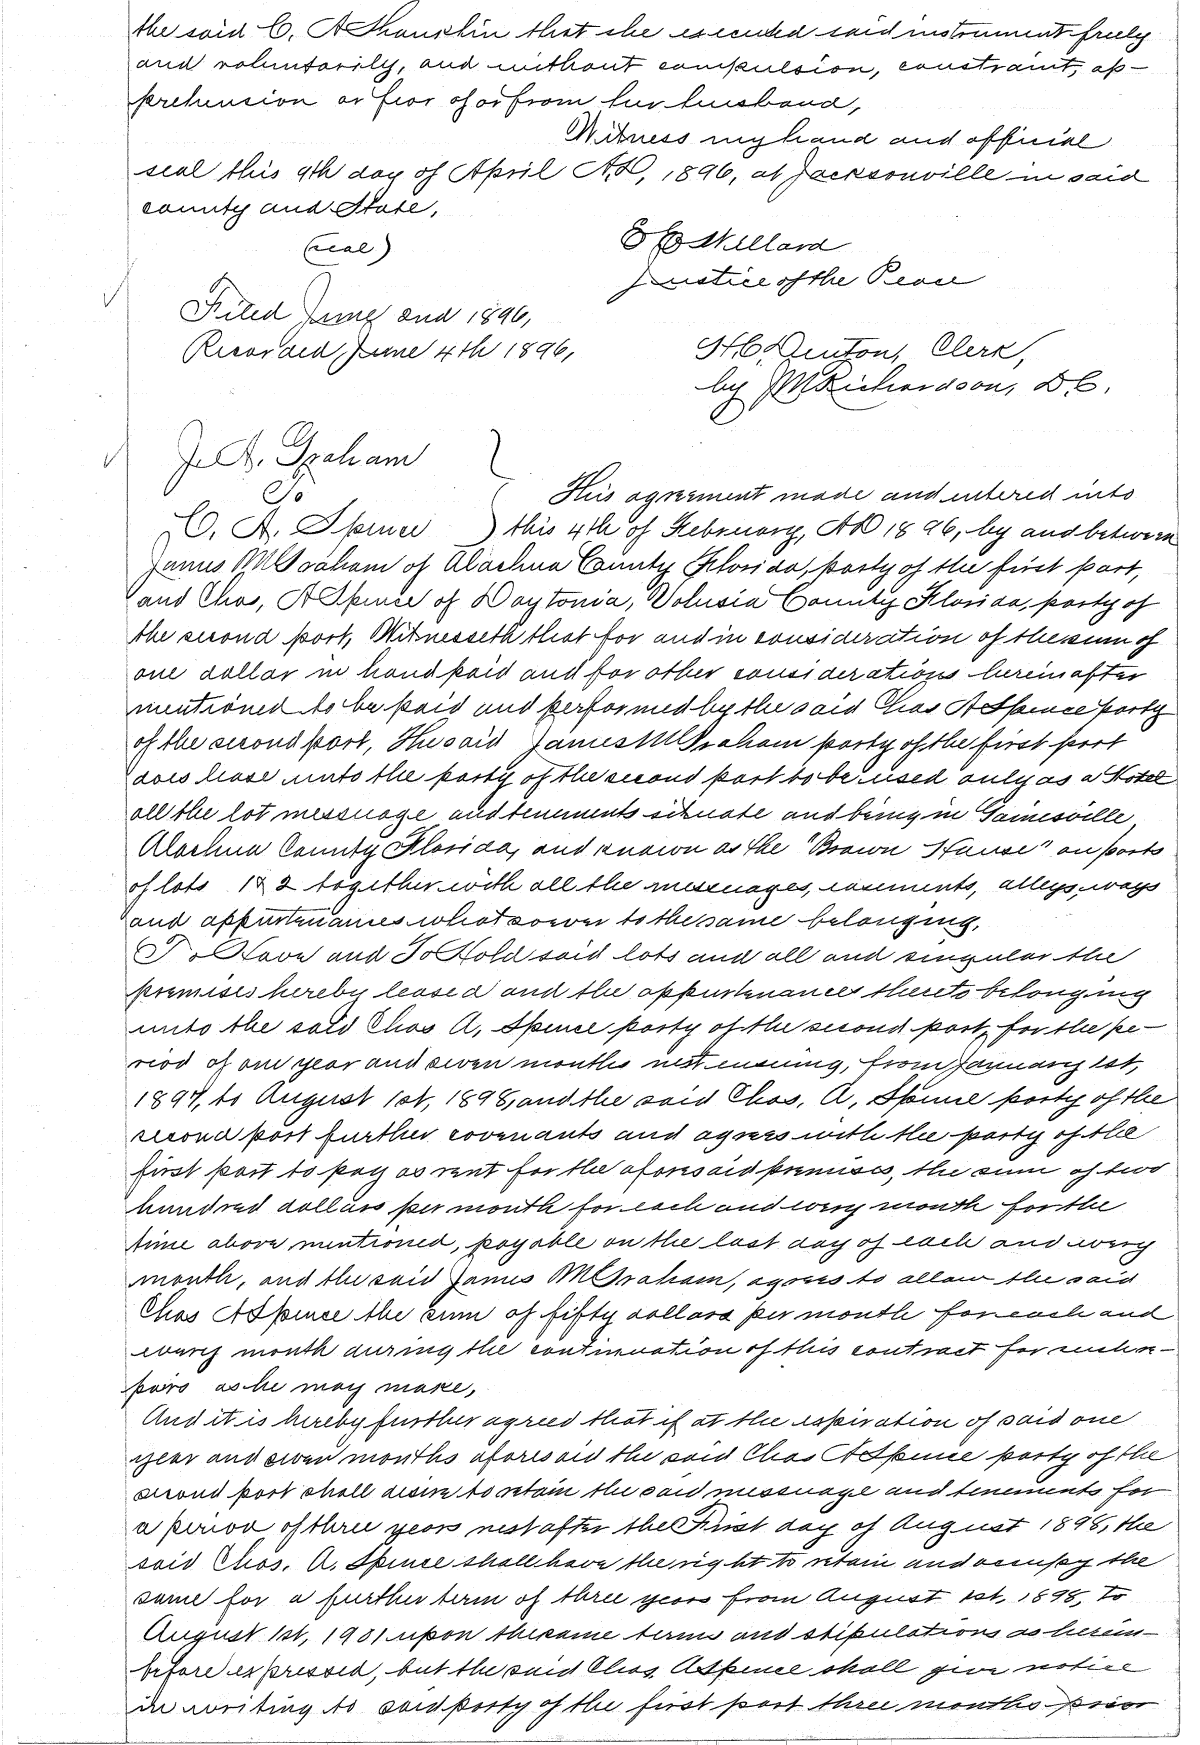 the said C. A Shanklin that she executed said instrument freely
and voluntarily, and without compulsion, constraint, ap-
prehension or fear of or from her husband,
Witness my hand and official
seal this 9th day of April A.D, 1896, at Jacksonville in said
county and State,
(seal)
Willard
Justice of the Peace
Filed June 2nd 1896,
Recorded, June 4th 1896,
H.C. Denton, Clerk,
by J M Richardson, D.C.
J. A. Graham
To
C. A. Spence
This agreement made and entered into
this 4th of February, AD 1896, by and between
James M Graham of Alachua County Florida, party of the first part,
and Chas, A Spence of Daytonia, Volusia County Florida, party of
the second part, Witnesseth that for and in consideration of the sum of
one dollar in hand paid and for other considerations hereinafter
mentioned to be paid and performed by the said Chas A Spence party
of the second part, The said James M Graham party of the first part
does lease unto the party of the second part to be used only as a Hotel
all the lot messuage and tenements situate and being in Gainesville,
Alachua County Florida, and known as the "Brown House" on parts
of lots 1 & 2 together with all the messuages, easements, alleys, ways
and appurtenances whatsoever to the same belonging.
To Have and To Hold said lots and all and singular the
premises hereby leased and the appurtenances thereto belonging
unto the said Chas A, Spence party of the second part, for the pe-
riod of one year and seven months next ensuing, from January 1st,
1897, to August 1st, 1898, and the said Chas. A, Spence party of the
second part further covenants and agrees with the party of the
first part to pay as rent for the aforesaid premises, the sum of two
hundred dollars per month for each and every month for the
time above mentioned, payable on the last day of each and every
month, and the said James M Graham, agrees to allow the said
Chas A Spence the sum of fifty dollars per month for each and
every month during the continuation of this contract for such re-
pairs as he may make,
And it is hereby further agreed that if at the expiration of said one
year and seven months aforesaid the said Chas A Spence party of the
second part shall desire to retain the said messuage and tenements for
a period of three years next after the First day of August 1898, the
said Chas. A. Spence shall have the right to retain and occupy the
same for a further term of three years from August 1st, 1898, to
August 1st, 1901 upon the same terms and stipulations as herein-
before expressed, but the said Chas, A Spence shall give notice
in writing to said party of the first part three months prior